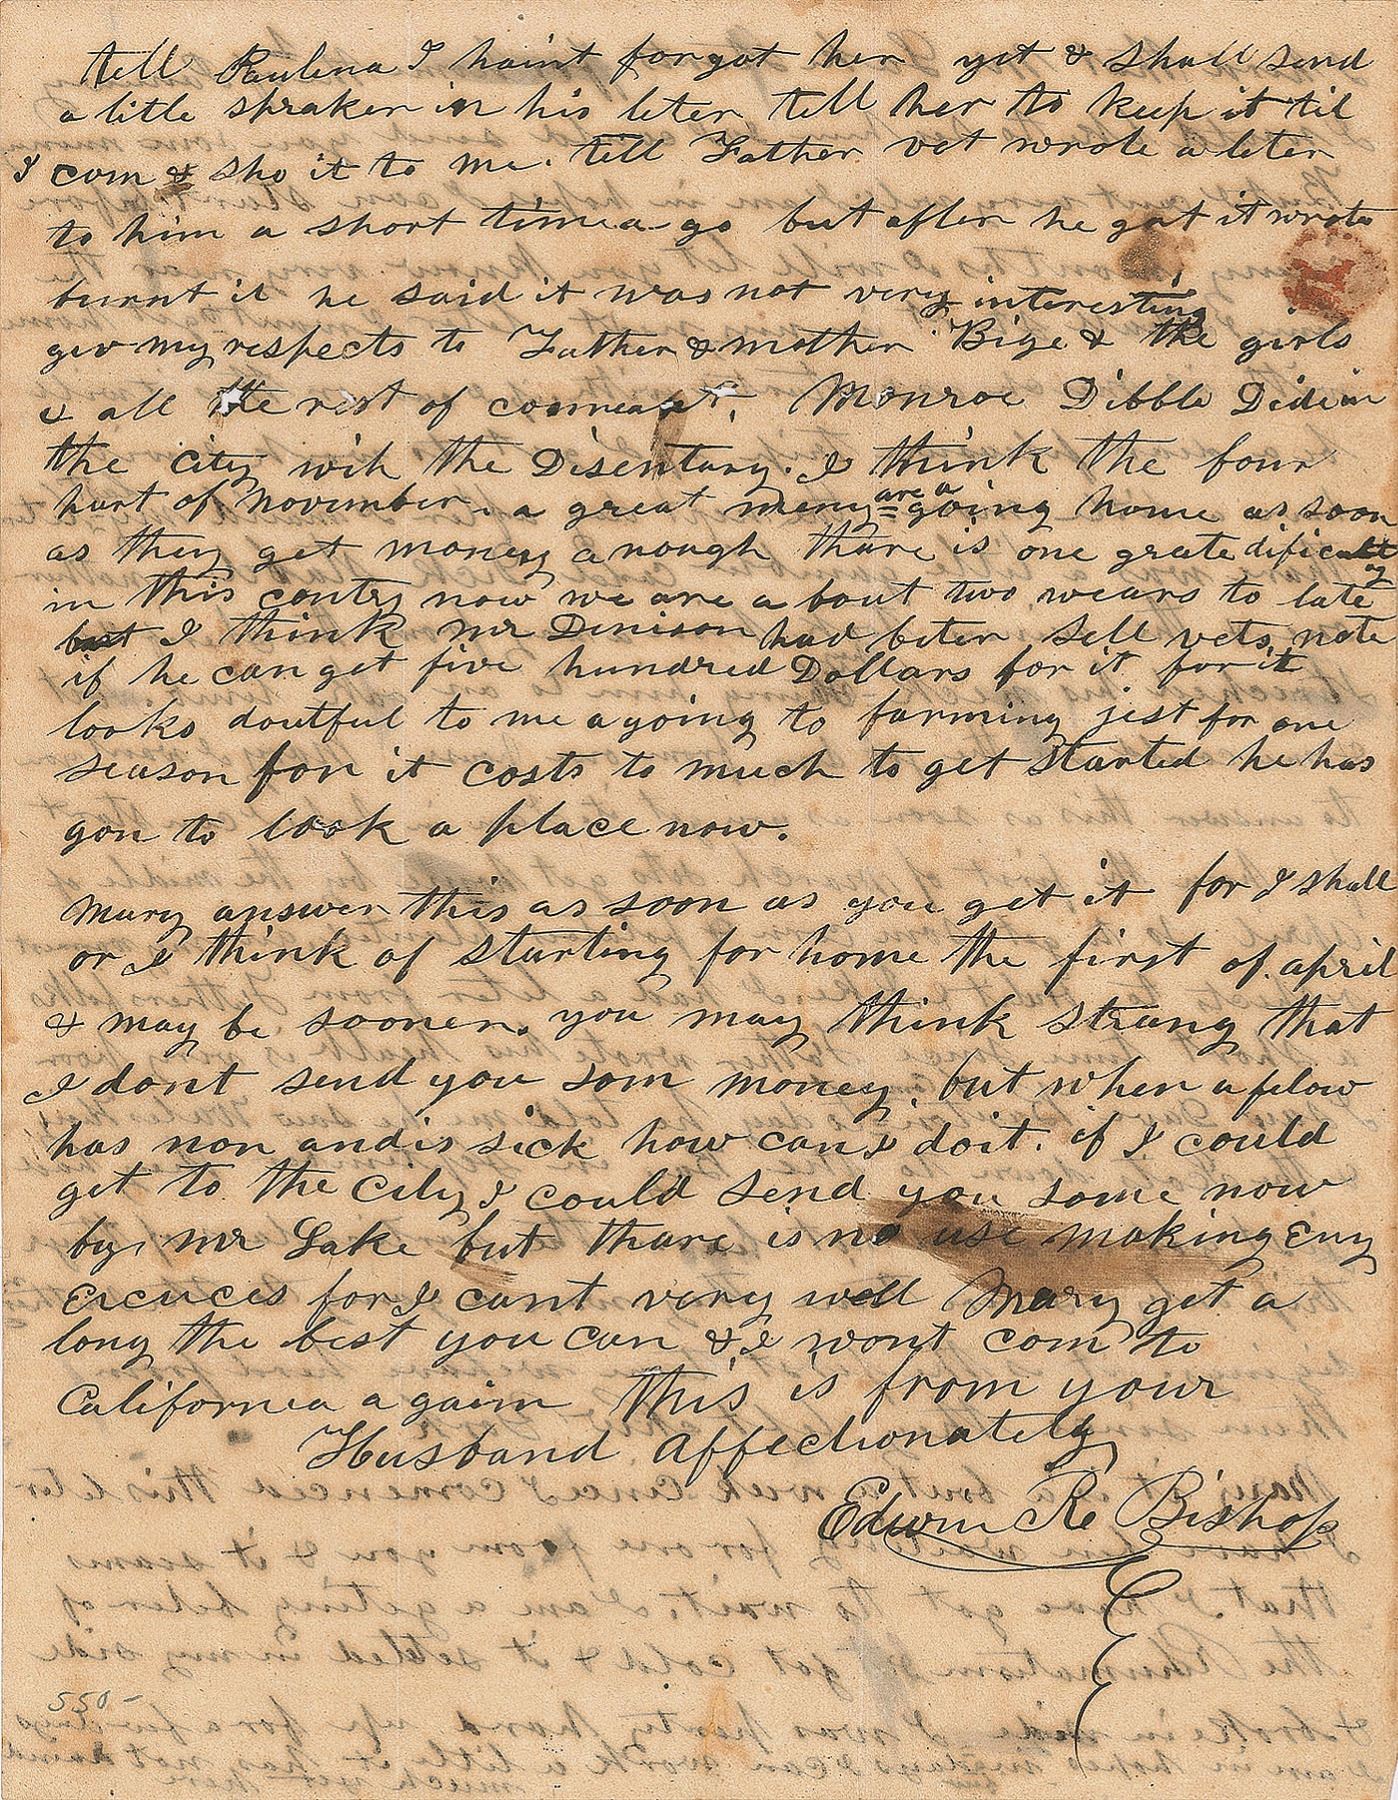 tell Paulena I haint forgot her yet & shall send
a litle spraker in his leter tell her to keep it til
I com & sho it to me. tell Father vet wrote a leter
to him a short time a go but after he got it wrote
burnt it he said it was not very interesting
giv my respects to Father & mother Bige & the girls
& all the rest of Monroe Dibble Died in
the City wih the Disentary. I think the four
part of november. a great meny are a going home as soon
as they get money a nough thare is one grate dificulty
in this contry now we are a bout two years to late
but I think mr Denison had beter sell vets note
if he can get five hundred Dollars for it for it
looks doutful to me a going to farming jest for one
season for it costs to much to get started he has
gon to look a place now.
Mary answer this as soon as you get it for I shall
or I think of starting for home the first of april
& may be sooner. you may think strang that
I dont send you som money. but when a felow
has non and is sick how can I do it. if I could
get to the City I could send you some now
by mr Lake but thare is no use making eny
Excuces for I cant very well Mary get a
long the best you can & I wont com to
California a gain This is from your
Husband Affectionately
Edwin R. Bishop
550-